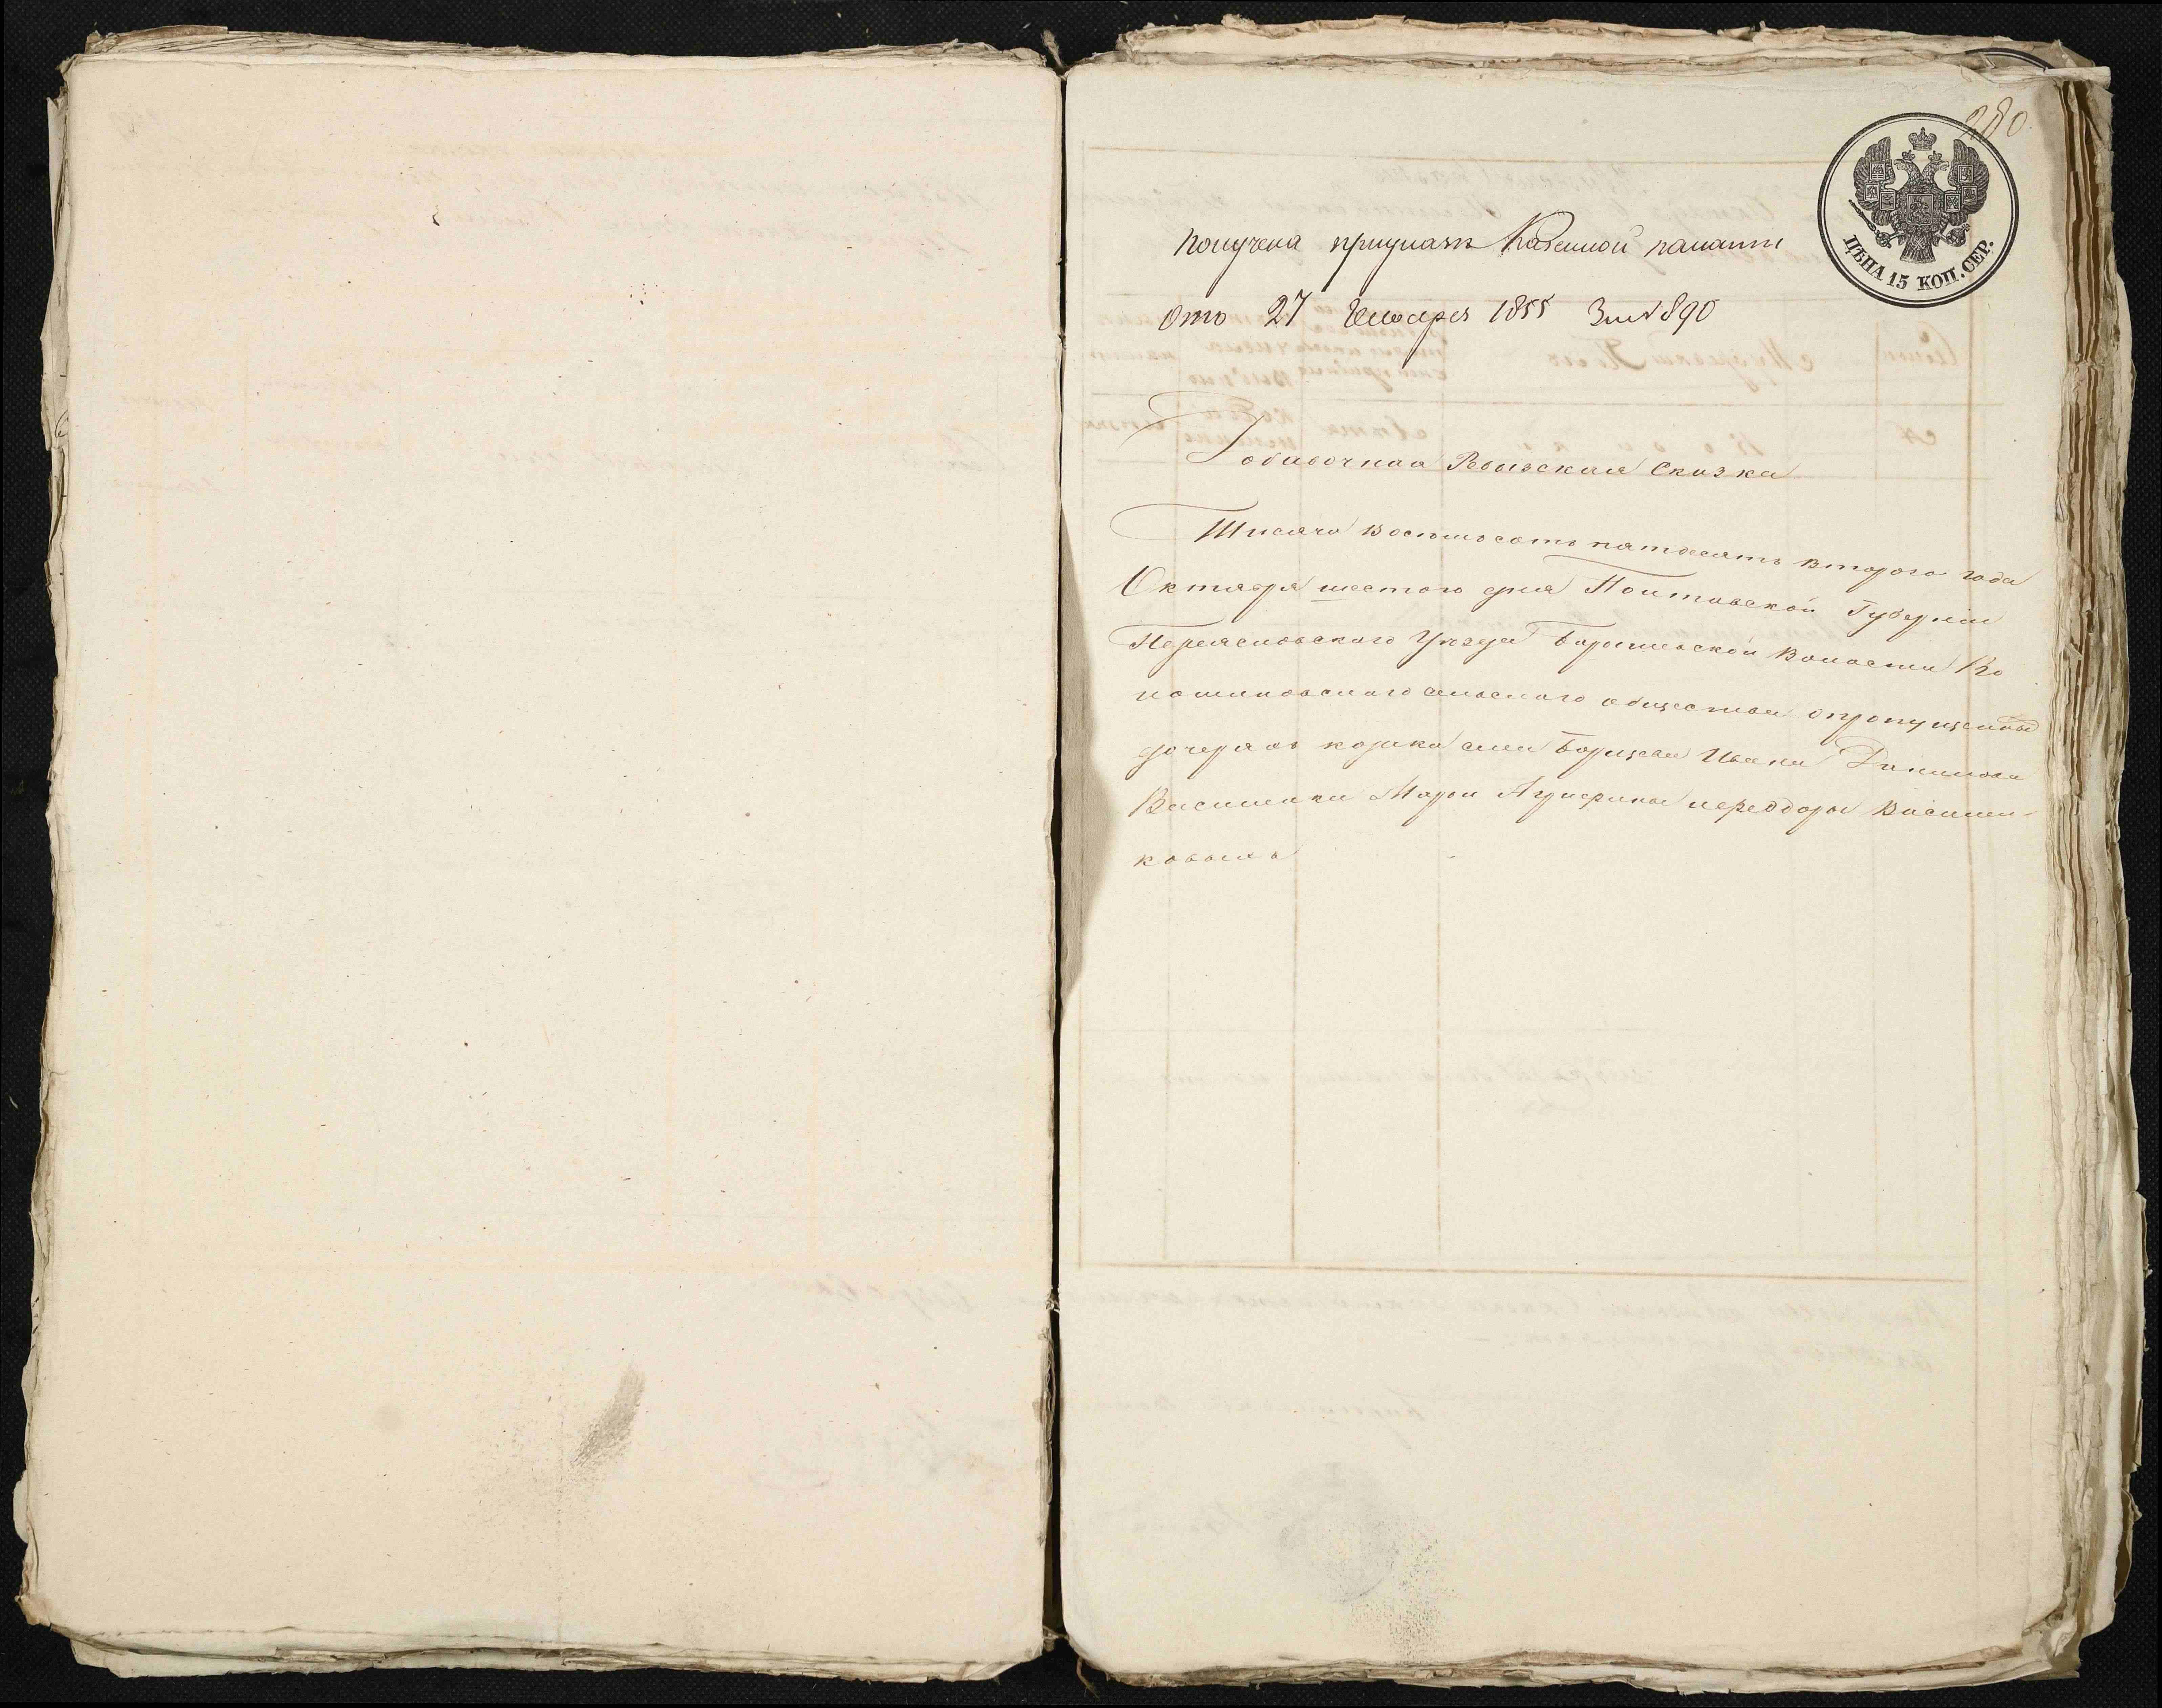 280
ЦѢНА 15 КОП. СЕР.
Получена при указѣ Казенной палаты
Отъ 27 Генваря 1855 За № 890
Добавочная Ревизская Сказка
Тысяча Восемьсотъ пятдесятъ Втораго года
Октября шестого дня Полтавской Губерніи
Переясловскаго Уѣзда Барышевской Волости
сельского общества о пропущенны
дочеряхъ козака села Борщева Ивана Данилова
Василенка Марьи и Ѳедоры Василен-
ковыхъ